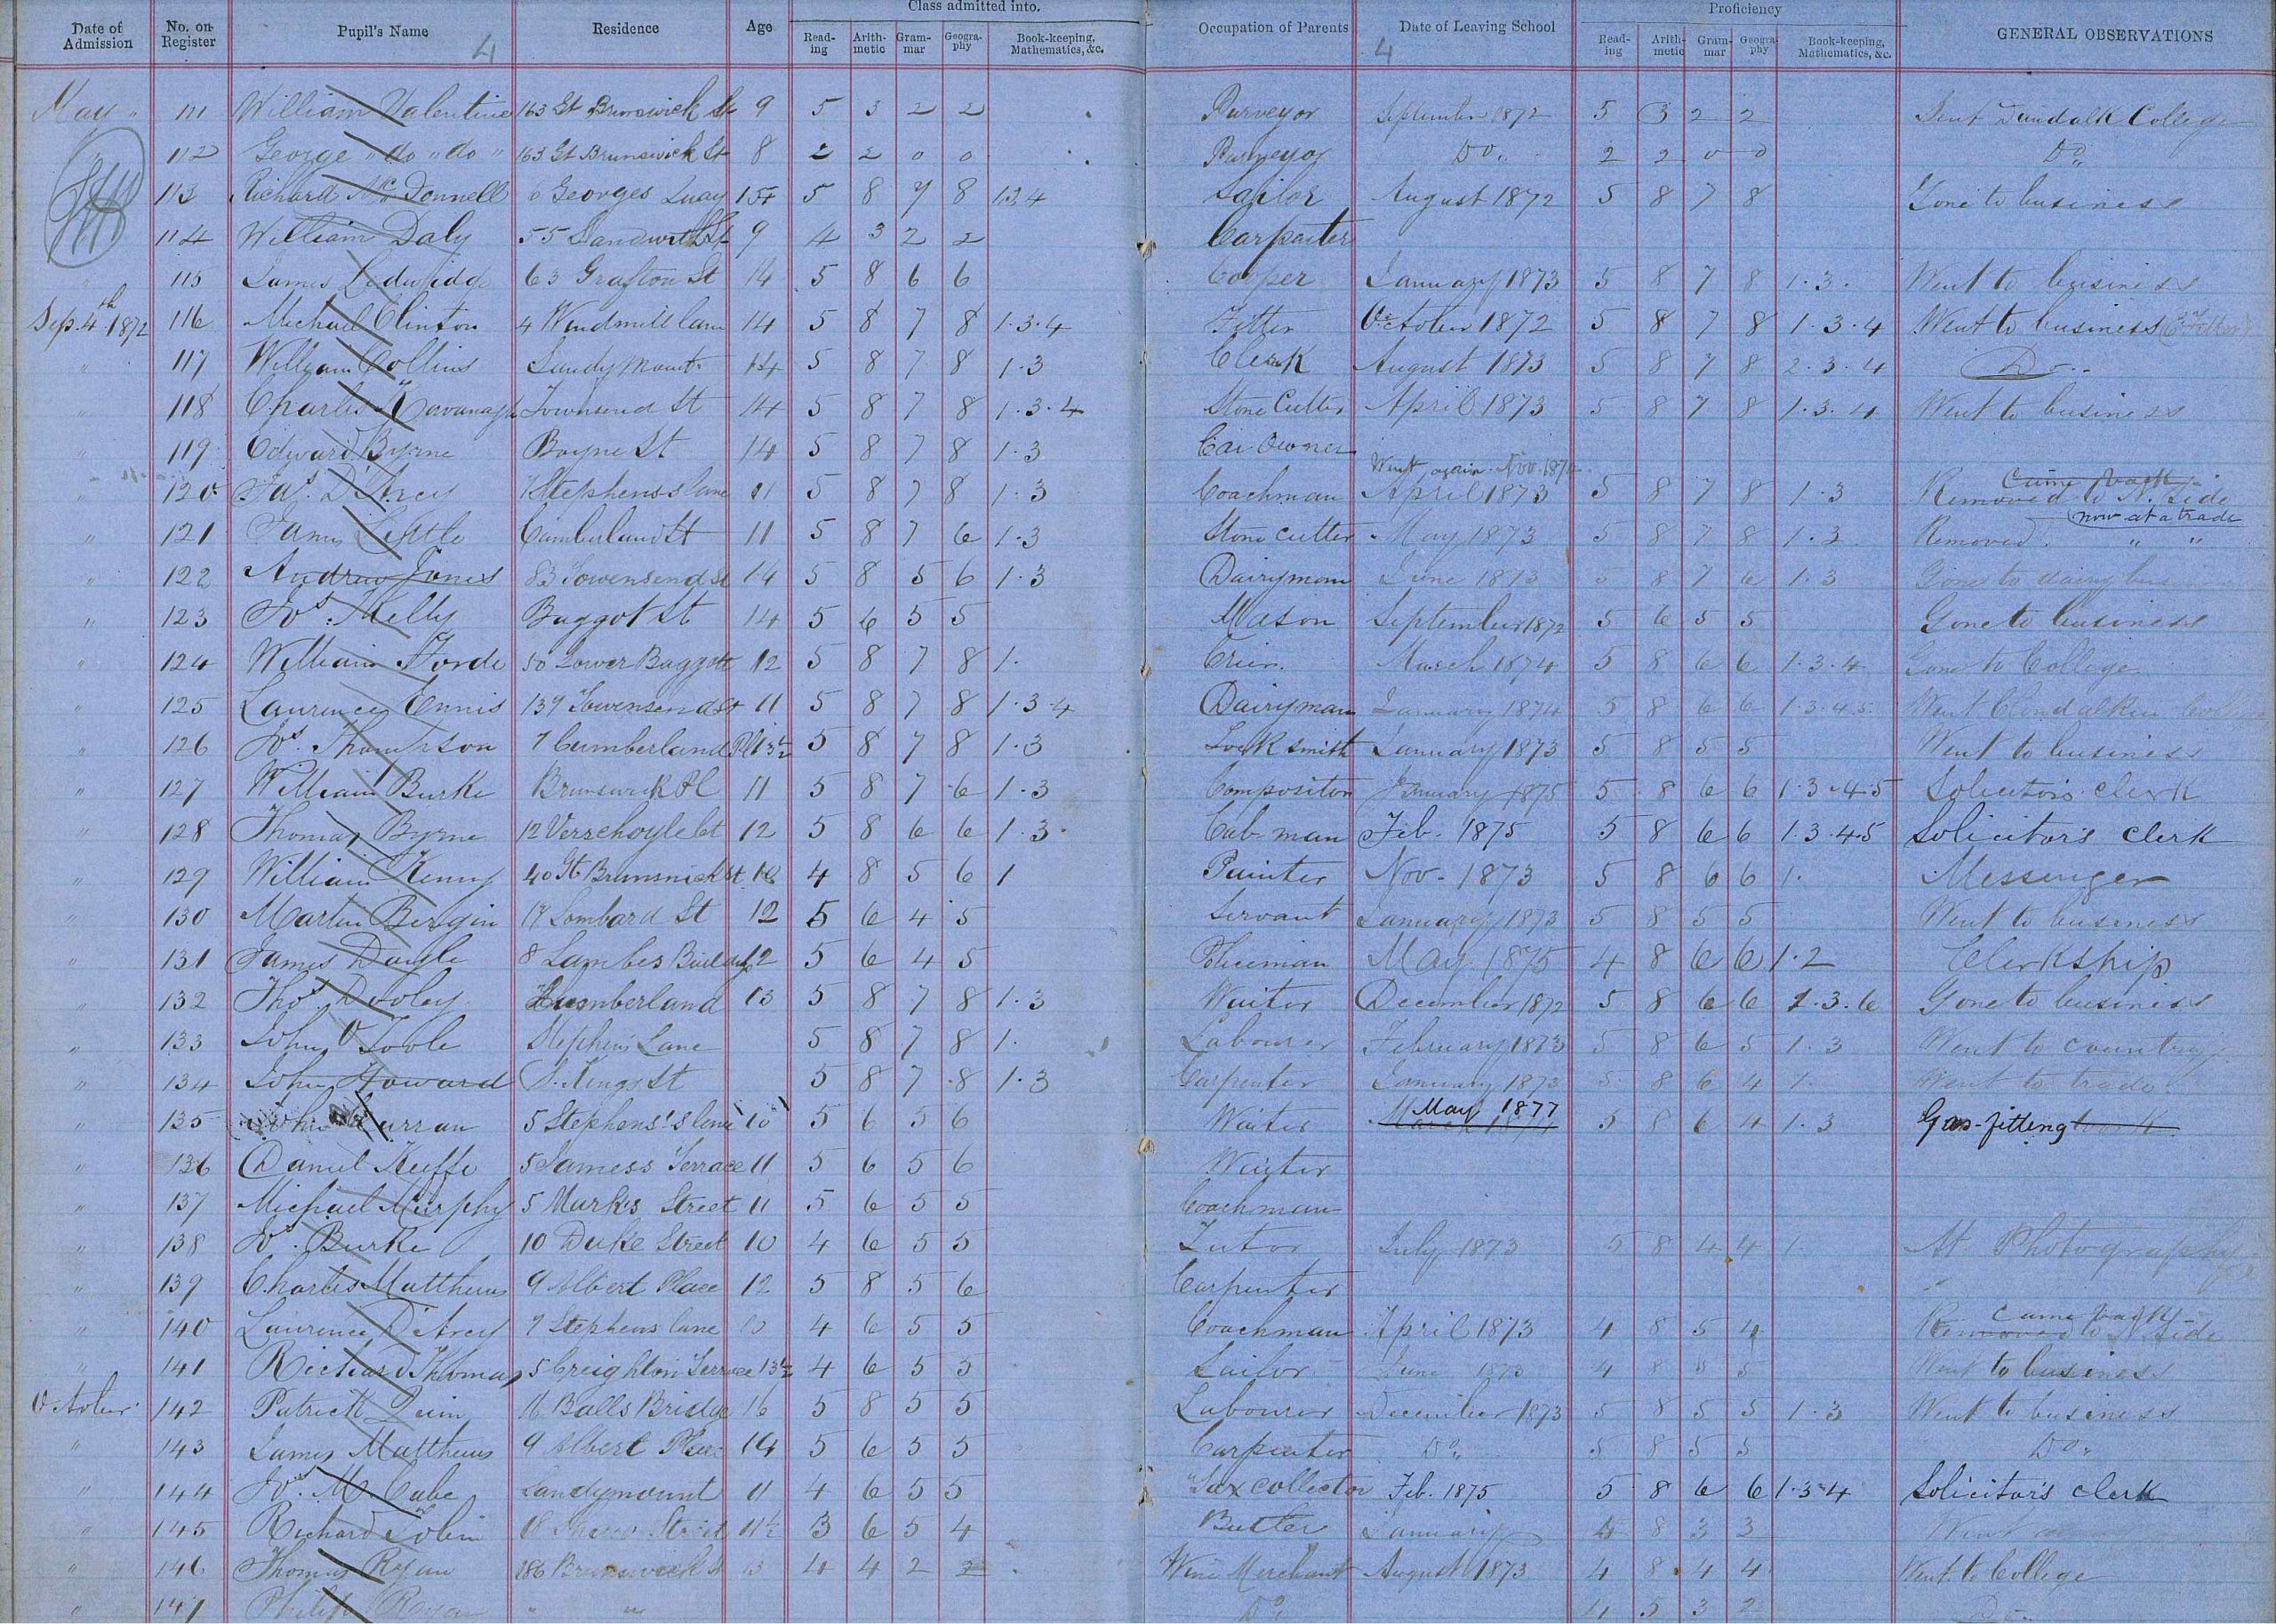 Class admitted into. Proficiency
Date of Admission No. on Register Pupil's Name Residence Age Reading Arithmetic Grammar Geography Book-keeping, Mathematics, &c. Occupation of Parents Date of Leaving School Reading Arithmetic Grammar Geography Book-keeping, Mathematics, &c. GENERAL OBSERVATIONS
4 4
May " 111 William Valentine 163 Gt Brunswick St 9 5 3 2 2 Purveyor September 1872 5 3 2 2 Sent Dundalk College
" 112 George " do " do " 163 Gt Brunswick St 8 2 2 0 0 Purveyor Do. 2 2 0 0 Do
113 Richard McDonnell 6 Georges Quay 15 5 8 7 8 1 3 4 Sailor August 1872 5 8 7 8 Gone to business
114 William Daly 55 Sandwith St 9 4 3 2 2 Carpenter
" 115 James Ledwidge 63 Grafton St 14 5 8 6 6 Cooper January 1873 5 8 7 8 1.3. Went to business
Sep. 4th 1872 116 Michael Clinton 4 Windmill lane 14 5 8 7 8 1.3.4 Fitter October 1872 5 8 7 8 1.3.4 Went to business
" 117 William Collins Sandymount 14 5 8 7 8 1.3 Clerk August 1873 5 8 7 8 2.3.4 Do.
" 118 Charles Kavanagh Townsend St 14 5 8 7 8 1.3.4 Stone Cutter April 1873 5 8 7 8 1.3.4 Went to business
" 119 Edward Byrne Boyne St 14 5 8 7 8 1.3 Car Owner
Went again Nov. 1874 Came back
" 120 Jas. D'Arcy 7 Stephens's lane 11 5 8 7 8 1.3 Coachman April 1873 5 8 7 8 1.3 Removed to N. Side
now at a trade
" 121 James Little Cumberland St 11 5 8 7 6 1.3 Stone Cutter May 1873 5 8 7 8 1.3 Removed " "
" 122 Andrew Jones 83 Townsend St 14 5 8 5 6 1.3 Dairyman June 1873 5 8 7 6 1.3 Gone to dairy bus
" 123 Jos. Kelly Baggot St 14 5 6 5 5 Mason September 1872 5 6 5 5 Gone to business
" 124 William Forde 50 Lower Baggott 12 5 8 7 8 1. Crier. March 1874 5 8 6 6 1.3.4 Gone to College
" 125 Laurence Ennis 139 Townsend St 11 5 8 7 8 1.3.4 Dairyman January 1874 5 8 6 6 1.3.4.5 Went Clondalkin
" 126 Jos. Thomson 7 Cumberland Pl 13½ 5 8 7 8 1.3 Locksmith January 1873 5 8 5 5 Went to business
" 127 William Burke Brunswick Pl 11 5 8 7 6 1.3 Compositor January 1875 5 8 6 6 1.3.4.5 Solicitor's Clerk
" 128 Thomas Byrne 12 Verschoyle Ct 12 5 8 6 6 1.3 Cab-man Feb. 1875 5 8 6 6 1.3.4.5 Solicitor's Clerk
" 129 William Kenny 40 Gt Brunswick St 10 4 8 5 6 1 Painter Nov. 1873 5 8 6 6 1. Messenger
" 130 Martin Bergin 17 Lombard St 12 5 6 4 5 Servant January 1873 5 8 5 5 Went to business
" 131 James Doyle 8 Lambes Buildings 12 5 6 4 5 Policeman May 1875 4 8 6 6 1.2 Clerkship
" 132 Thos. Dooley Cumberland 13 5 8 7 8 1.3 Waiter December 1872 5 8 6 6 1.3.6 Gone to business
" 133 John O'Toole Stephen's Lane 5 8 7 8 1. Labourer February 1873 5 8 6 5 1.3 Went to country
" 134 John Howard S. Kings St 5 8 7 8 1.3 Carpenter January 1873 5 8 6 4 1. Went to trade
May 1877
" 135 John Curran 5 Stephens's lane 10 5 6 5 6 Waiter 5 8 6 4 1.3 Gas-fitting
" 136 Daniel Keeffe 5 Jamess Terrace 11 5 6 5 6 Waiter
" 137 Michael Murphy 5 Mark's Street 11 5 6 5 5 Coachman
" 138 Jos. Burke 10 Duke Street 10 4 6 5 5 Tutor July 1873 5 8 4 4 1. At Photography
" 139 Charles Matthews 9 Albert Place 12 5 8 5 6 Carpenter
came back
" 140 Laurence D'Arcy 7 Stephens lane 10 4 6 5 5 Coachman April 1873 4 8 5 4 Removed to N. Side
" 141 Richard Thomas 5 Creighton Terrace 13½ 4 6 5 5 Sailor June 1873 4 8 5 5 Went to business
October 142 Patrick Quin 16 Balls Bridge 16 5 8 5 5 Labourer December 1873 5 8 5 5 1.3 Went to business
" 143 James Matthews 9 Albert Place 14 5 6 5 5 Carpenter Do. 5 8 5 5 Do.
" 144 Jos. McCabe Sandymount 11 4 6 5 5 Tax Collector Feb. 1875 5 8 6 6 1.3.4 Solicitor's Clerk
" 145 Richard Tobin 18 Street 11½ 3 6 5 4 Butler January 4 8 3 3 Went
" 146 Thomas Ryan 186 Brunswick St 13 4 4 2 2 Wine Merchant August 1873 4 8 4 4 Went to College
" 147 Philip Ryan " " Do. 4 5 3 2 Do.